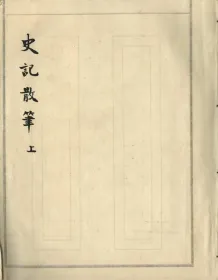 史記散筆 上